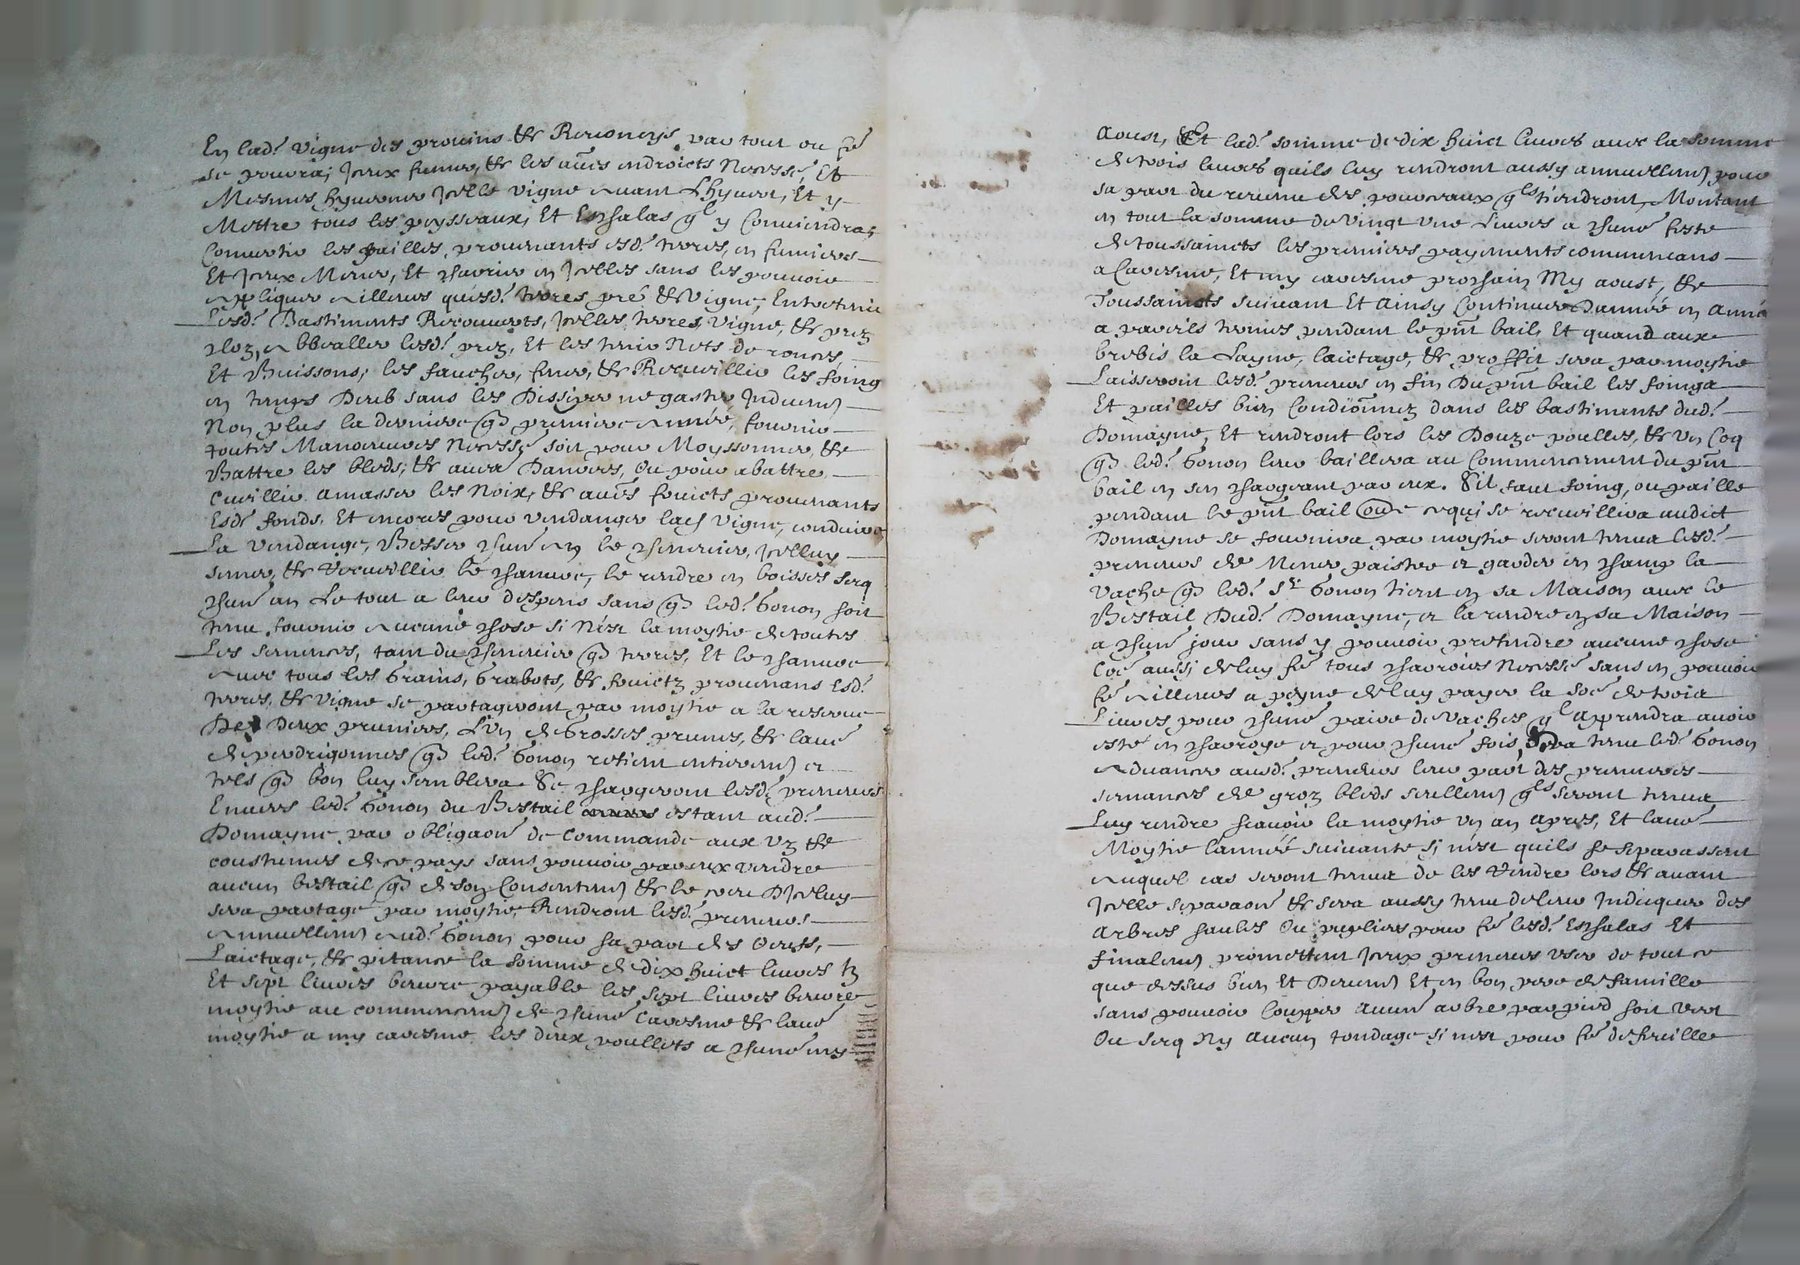 En lad? vigne des prouins & par tout ou fe
se pourra, Iceux fumer, & les au?es endroicts necess?, Et
Mesmes hyuerner Icelle vigne auant Lhyuert, Et y
Mettre tous les peysseaux, Et Eschalas ql y Conuiendra,
Conuertir les pailles, prouenants esd? terres, en fumiers
Et Iceux Mener, Et charrier en Icelles sans les pouuoir
appliquer ailleurs quesd? terres, pré & vigne; Entretenir
Lesd? Bastiments Recouuerts, Icelles terres, vigne, & prez
cloz, lesd? prez, Et les tenir Nets de ronces
Et Buissons; les faucher, fener, & Recueillir les foing
en temps Deub sans les Dissiper ne gaster
Non plus la derniere que premiere année, fournir
toutes Manoeuures necess? soit pour Moyssonner, &
Battre les bleds; & Ou pour abattre
Cueillir amasser les Noix, & au?es fruicts prouenants
Esd? fonds, Et encores pour vendanger lad? vigne, conduire
La vendange, chun an le Icelluy
semer, & recueillir le chanure, le rendre en boisses secq
chun an Le tout a leur despens sans que led? Gonon soit
tenu fournir aucune chose si n'est la moytie de toutes
Les semences, tant du que terres, Et le chanure
auec tous les Grains, Grabots, & fruictz prouenans Esd?
terres, & vigne se partageront par moytie a la reserue
Des Deux pruniers, L'un de Grosses prunes, & lau?
de perdrigonnes que led? Gonon retient et
tels que bon luy semblera Se chargeront lesd? preneurs
Enuers led? Gonon du Bestail estant aud?
Domayne par obligaon de Commande aux Uz &
coustumes de ce pays sans pouuoir par eux vendre
aucun bestail que de son & le D'Iceluy
sera partagé par moytie, Rendront lesd? preneurs
aud? Gonon pour sa part des
Laictage, & pitance la somme de dix huict liures
Et sept liures beurre payable les sept liures beurre
moytie au de chune Caresme & lau?
moytie a my caresme les deux poullets a chune my
Aoust, Et lad? somme de dix huict liures auec la somme
de trois liures quils luy rendront aussy pour
sa part du reuenu des pourceaux qls tiendront, Montant
en tout la somme de Vingt Une Liures a chune feste
de toussaincts les premiers payements
a Caresme, Et my caresme prochain My aoust, &
Toussaincts suiuant Et Ainsy Continuer D'année en Année
a pareils termes pendant le pnt bail, Et quand aux
brebis la Layne, laictage, & proffit sera par moytie
Laisseront lesd? preneurs en fin Du pnt bail les foings
Et pailles bien Condionnez dans les bastiments dud?
Domayne, Et rendront lors les Douze poulles, & Un Coq
que led? Gonon leur baillera au Commencement du pnt
bail en sen chargeant par eux. S'il faut foing, ou paille
pendant le pnt bail outre ce qui se recueillira audict
Domayne se fournira par moytie seront tenus lesd?
preneurs de Mener paistre et garder en champ la
Vache que led? Sr Gonon tient en sa Maison auec le
Bestail Dud? Domayne, et la rendre en sa Maison
a chun jour sans y pouuoir pretendre aucune chose
aussi de luy fe tous charrois Necess? sans en pouuoir
fe ailleurs a peyne de luy payer la de trois
Liures pour chune paire de Vaches ql apprendra auoir
esté en charroye et pour chune fois, Sera tenu led? Gonon
aduancer ausd? preneurs leur part des premieres
semances de groz bleds qls seront tenus
Luy rendre scauoir la moytie un an apres, Et lau?
Moytie l'année suiuante si n'est quils se separassent
auquel cas seront tenus de les Rendre lors & auant
Icelle separaon & sera aussy tenu de leur Indicquer des
Arbres saules Ou pepliers pour fe lesd? Eschalas Et
finalem? promettent Iceux preneurs user de tout ce
que dessus bien Et Deuem? Et en bon pere de famille
sans pouuoir Coupper Aucun arbre par pied soit vert
Ou secq Ny Aucun tondage si nest pour fe de fueille